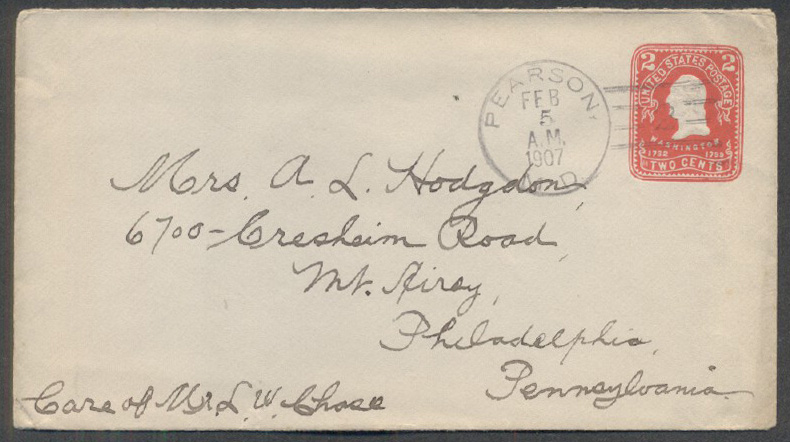 PEARSON,
FEB
5
A.M.
1907
M.D.
2 2
UNITED STATES POSTAGE
WASHINGTON
1732 1799
TWO CENTS
Mrs. A. L. Hodgdon,
6700-Cresheim Road,
Mt. Airey,
Philadelphia,
Pennsylvania.
Care of Mr. L. W. Chase